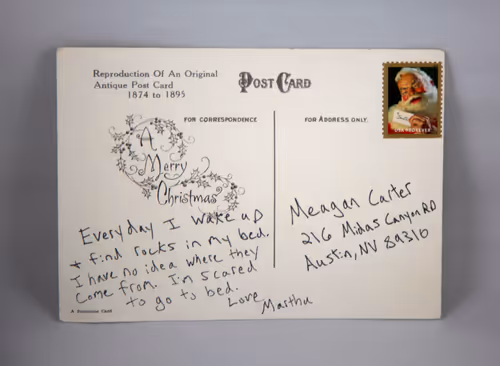 Reproduction Of An Original
Antique Post Card
1874 to 1895
POST CARD
FOR CORRESPONDENCE
FOR ADDRESS ONLY.
USA FOREVER
A
Merry
Christmas
Everyday I wake up
+ find rocks in my bed.
I have no idea where they
come from. I'm scared
to go to bed.
Love
Martha
Meagan Carter
216 Midas Canyon RD
Austin, NV 89310